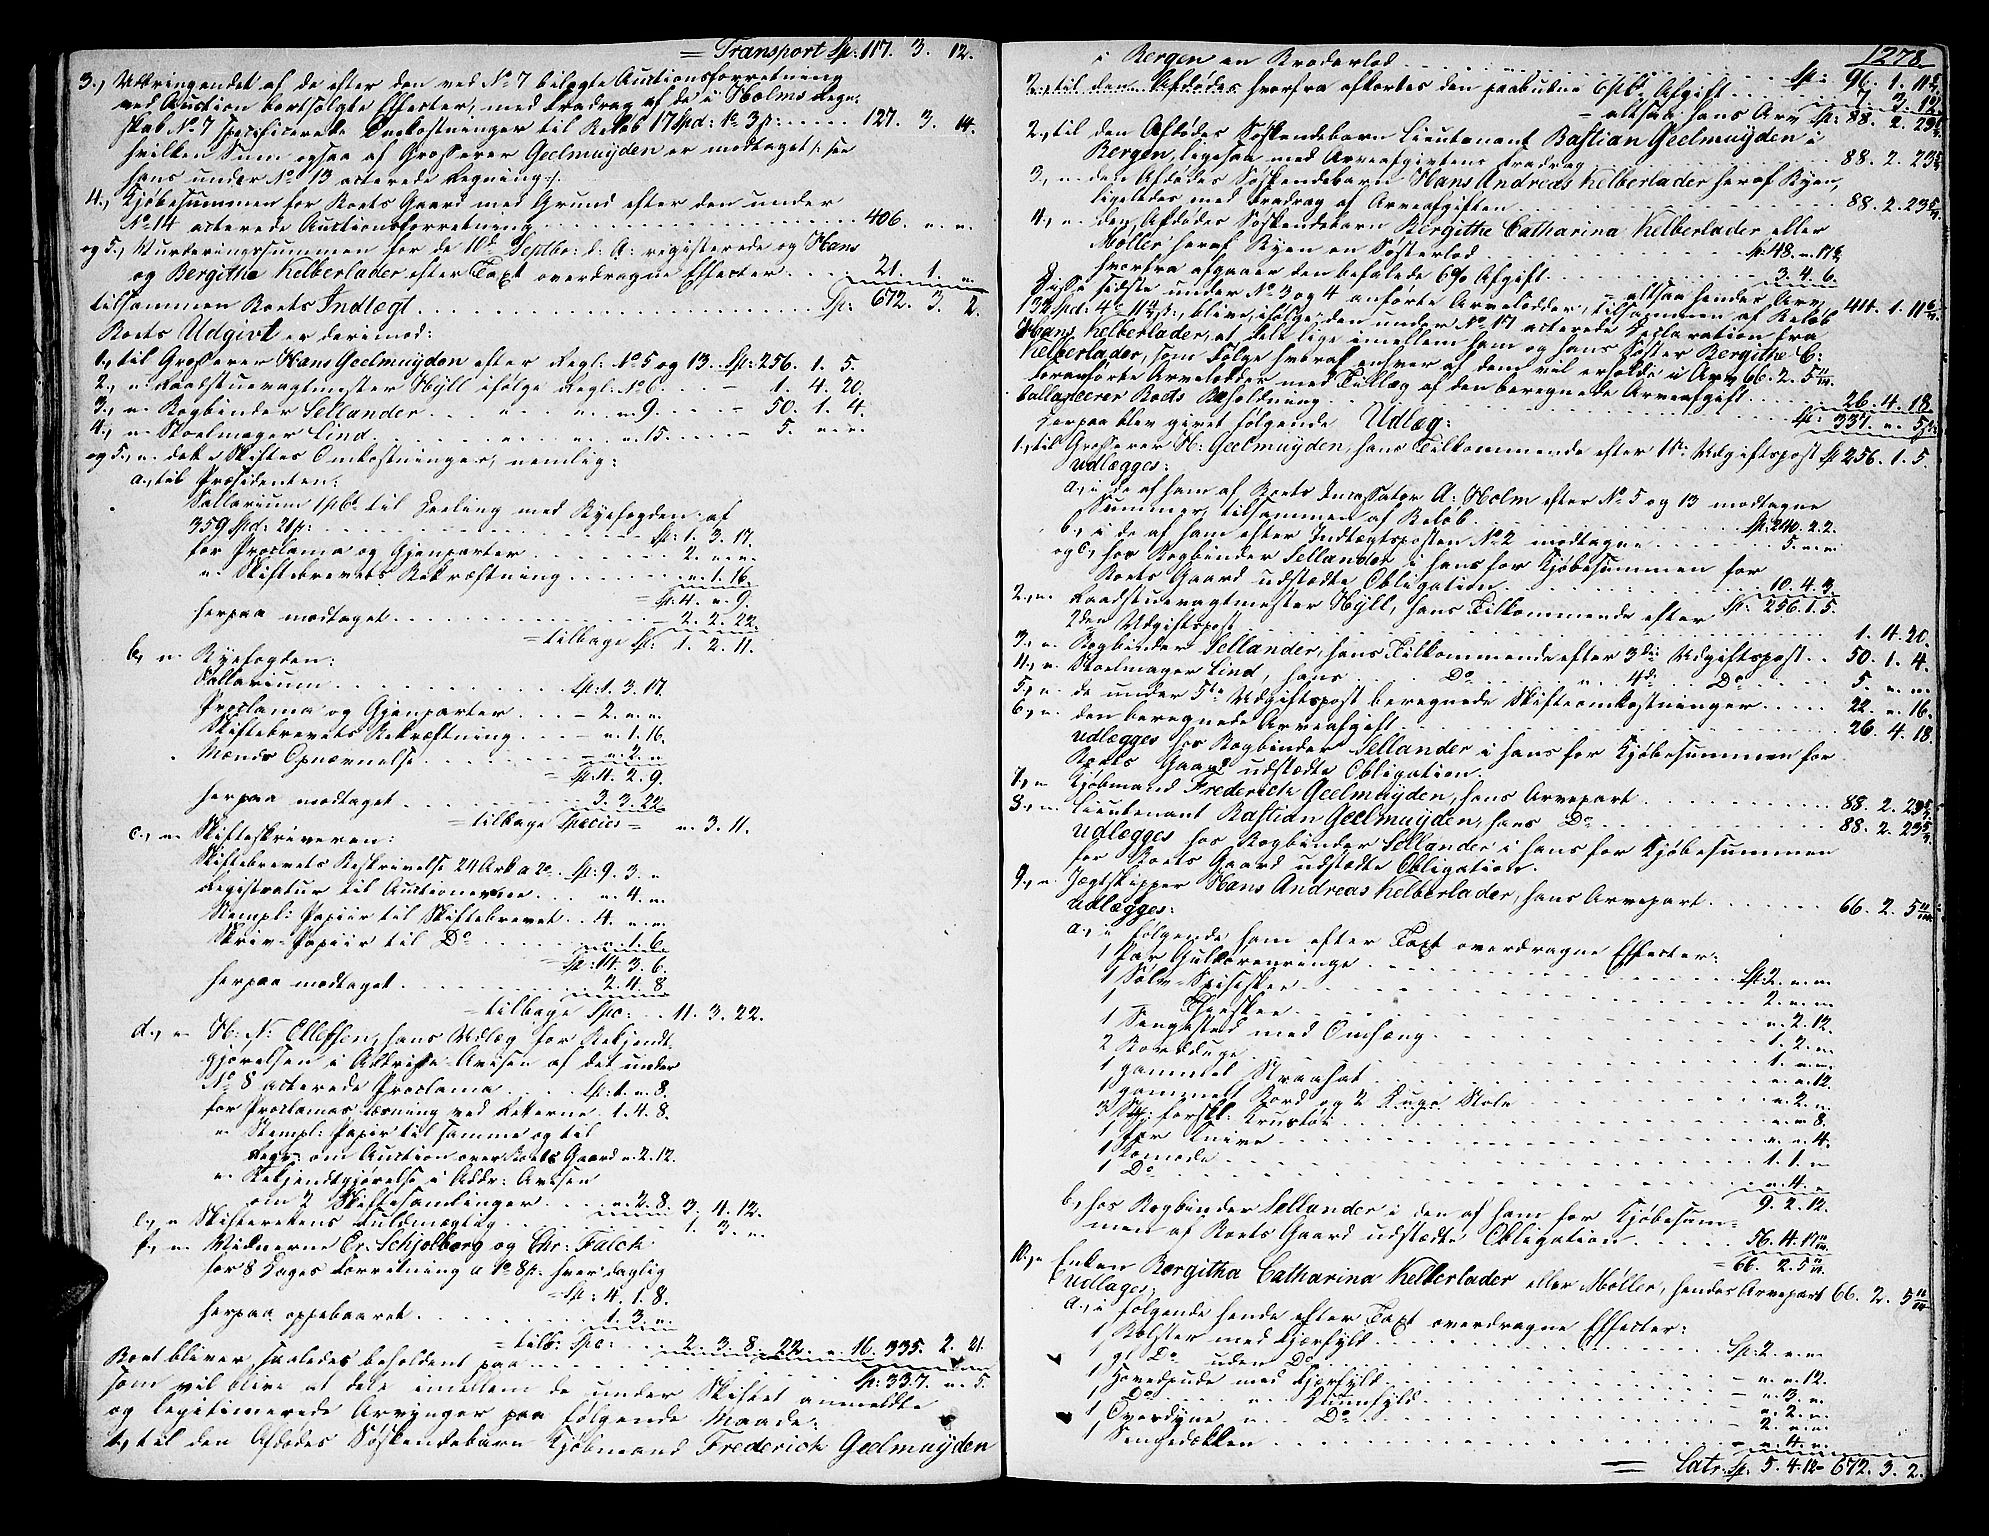 = Transport Sp: 117. 3. 12.
3., Udbringendet af de efter den ved No 7 bilagte Auctionsforretning
ved Auction bortsolgte Effecter, med Fradrag af de i Holms Regn-
skab No 7 specificerede Omkostninger til Beløb 17 Spd: 1 # 3 s: ..... 127. 3. 14.
hvilken Sum ogsaa af Grosserer Geelmuyden er modtaget /: see
hans under No 13 acterede Regning :/.
4., Kjøbesummen for Boets Gaard med Grund efter den under
No 14 acterede Auctionsforretning ..... 406. " "
og 5., Vurderingssummen for de 10de Septbr: d: A: registerede og Hans
og Bergithe Kelberlader efter Taxt overdragne Effecter .... 21. 1. "
tilsammen Boets Indtægt ..... Sp: 672. 3. 2.
Boets Udgivt er derimod:
1., til Grosserer Hans Geelmuyden efter Regl: No 5 og 13. Sp: 256. 1. 5.
2., " Raadstuevagtmester Hÿll ifølge Regl: No 6 ... - 1. 4. 20.
3., " Bogbinder Sellander ... " ... " 9 .... - 50. 1. 4.
4., " Stoelmager Lind ... " ... " 15 .... - 5. " "
og 5., " dette Skiftes Omkostninger, nemlig:
a., til Præsidenten:
Sallarium 1 pCt til Deeling med Byefogden af
359 Spd: 21 s: ..... Sp: 1. 3. 17.
for Proclama og Gjenparter ..... 2. " "
" Skiftebrevets Bekræftning ..... " 1. 16.
= Sp: 4. " 9.
herpaa modtaget ..... - 2. 2. 22.
= tilbage Sp: 1. 2. 11.
b., " Byefogden:
Sallarium ..... Sp: 1. 3. 17.
Proclama og Gjenparter ... - 2. " "
Skiftebrevets Bekræftning ... - " 1. 16.
Mænds Opnævnelse ..... - " 2. "
= Sp: 4. 2. 9.
herpaa modtaget ..... 3. 3. 22.
= tilbage Species = " 3. 11.
c., " Skifteskriveren:
Skiftebrevets Beskrivelse 24 Ark a 2 # .. Sp: 9. 3. "
Registratur til Auctionerne ... " 4. "
Stempl: Papiir til Skiftebrevet .. 4. " "
Skriv-Papiir til Do ..... " 1. 6.
= Sp: 14. 3. 6.
herpaa modtaget ..... 2. 4. 8.
= tilbage Spc: .. 11. 3. 22.
d., " H: N: Ellefsen, hans Udlæg for Bekjendt-
gjørelsen i Adresse-Avisen af det under
No 8 acterede Proclama ..... Sp: 1. " 8.
for Proclamas Læsning ved Retterne . 1. 4. 8.
" Stempl: Papir til samme og til
Regn: om Auction over Boets Gaard " 2. 12.
" Bekjendtgjørelse i Addr: Avisen
om 2 Skiftesamlinger ..... " 2. 8. 3. 4. 12.
e., " Skifterettens Fuldmægtig ..... 1. 3. "
f., " Vidnerne Er. Schjolberg og Chr: Falch
for 8 Dages Forretning a 1 # 8 s. hver daglig
= Sp: 4. 1. 8.
herpaa oppebaaret ..... 1. 3. "
= tilb: Spc: ... 2. 3. 8. 22. " 16. 335. 2. 21.
Boet bliver saaledes beholdent paa ..... Sp: 337. " 5.
som vil blive at dele imellem de under Skiftet anmeldte
og legitimerede Arvinger paa følgende Maade:
1., til den Afdødes Søskendebarn Kjøbmand Frederich Geelmuyden
1278
i Bergen en Broderlod ..... Sp: 96. 1. 11 6/7
hvorfra afkortes den paabudne 6 pCt Afgift ..... 7. 3. 12
= altsaa hans Arv Sp: 88. 2. 23 5/7
2., til den Afdødes Søskendebarn Lieutenant Bastian Geelmuyden i
Bergen, ligesaa med Arveafgivtens Fradrag ..... 88. 2. 23 5/7
3., " den Afdødes Søskendebarn Hans Andreas Kelberlader her af Byen,
ligeledes med Fradrag af Arveafgiften ..... 88. 2. 23 5/7
4., " den Afdødes Søskendebarn Bergithe Catharina Kelberlader eller
Møller her af Byen en Søsterlod ..... Sp: 48. "
hvorfra afgaaer den befalede 6% Afgift ..... 3. 4. 6.
= altsaa hendes Arv 44. 1. 11 6/7
Disse sidste under No 3 og 4 anførte Arvelodder, tilsammen af Beløb
132 Spd: 4 # 11 s:, blive, ifølge den under No 17 acterede Declaration fra
Hans Kelberlader, at dele lige imellem ham og hans Søster Bergithe C:
Kelberlader, som Følge hvoraf enhver af dem vil erholde i Arv 66. 2. 5 11/14.
foranførte Arvelodder med Tillæg af den beregnede Arveafgift ..... 26. 4. 18.
ballancerer Boets Beholdning ..... Sp: 337. " 5.
Herpaa blev givet følgende Udlæg:
1., til Grosserer H: Geelmuyden, hans Tilkommende efter 1ste Udgiftspost Sp 256. 1. 5.
udlægges:
a., i de af ham af Boets Incassator A: Holm efter No 5 og 13 modtagne
Summer, tilsammen af Beløb ..... Sp: 240. 2. 2.
b., i de af ham efter Indtægtsposten No 2 modtagne ..... 5. " "
og c., hos Bogbinder Sellander i hans for Kjøbesummen for
Boets Gaard udstædte Obligation ..... 10. 4. 3.
Sp: 256. 1. 5.
2., " Raadstuevagtmester Hÿll, hans Tilkommende efter
2den Udgiftspost ..... 1. 4. 20.
3., " Bogbinder Sellander, hans Tilkommende efter 3die Udgiftspost .. 50. 1. 4.
4., " Stoelmager Lind, hans ... Do ... " 4de Do .... 5. " "
5., " de under 5te Udgiftspost beregnede Skifteomkostninger ..... 22. " 16.
6., " den beregnede Arveafgift ..... 26. 4. 18.
udlægges hos Bogbinder Sellander i hans for Kjøbesummen for
Boets Gaard udstædte Obligation.
7., " Kjøbmand Frederich Geelmuyden, hans Arvepart ..... 88. 2. 23 5/7
8., " Lieutenant Bastian Geelmuyden, hans Do ..... 88. 2. 23 5/7
udlægges hos Bogbinder Sellander i hans for Kjøbesummen
for Boets Gaard udstædte Obligation.
9., " Jægtskipper Hans Andreas Kelberlader, hans Arvepart ..... 66. 2. 5 11/14
udlægges:
a., i følgende ham efter Taxt overdragne Effecter:
1 Par Guldørenringe ..... Sp: 2. " "
1 Sølv-Spiseskee ..... 2. " "
1 — Theeskee ..... " 2. 12.
1 Sengested med Omhæng ..... 1. 2. "
2 Bordduge ..... 1. " "
1 gammel Straahat ..... " " 12.
1 gammel Bord og 2 Stole ..... " 2. "
3 St: forskl: Krustøi ..... " " 8.
1 Par Knive ..... " " 4.
1 Komode ..... 1. 1. "
1 Do ..... " 4. "
9. 2. 12.
b., hos Bogbinder Sellander i den af ham for Kjøbesum-
men af Boets Gaard udstædte Obligation ..... 56. 4. 17 11/14
= 66. 2. 5 11/14
10., " Enken Bergitha Catharina Kelberlader eller Møller, hendes Arvepart 66. 2. 5 11/14
udlæges:
a., i følgende hende efter Taxt overdragne Effecter:
1 Bolster med Fjærfyld ..... Sp: 2. " "
1 gl Do uden Do ..... - " " 12.
1 Hovedpude med Fjærfyld ..... - " 3. "
1 Do " Duunfyld ..... - " 2. "
1 Overdyne " Do ..... - 2. " "
1 Sengedækken ..... - " 4. "
= Latr: Sp: 5. 4. 12 - 672. 3. 2.